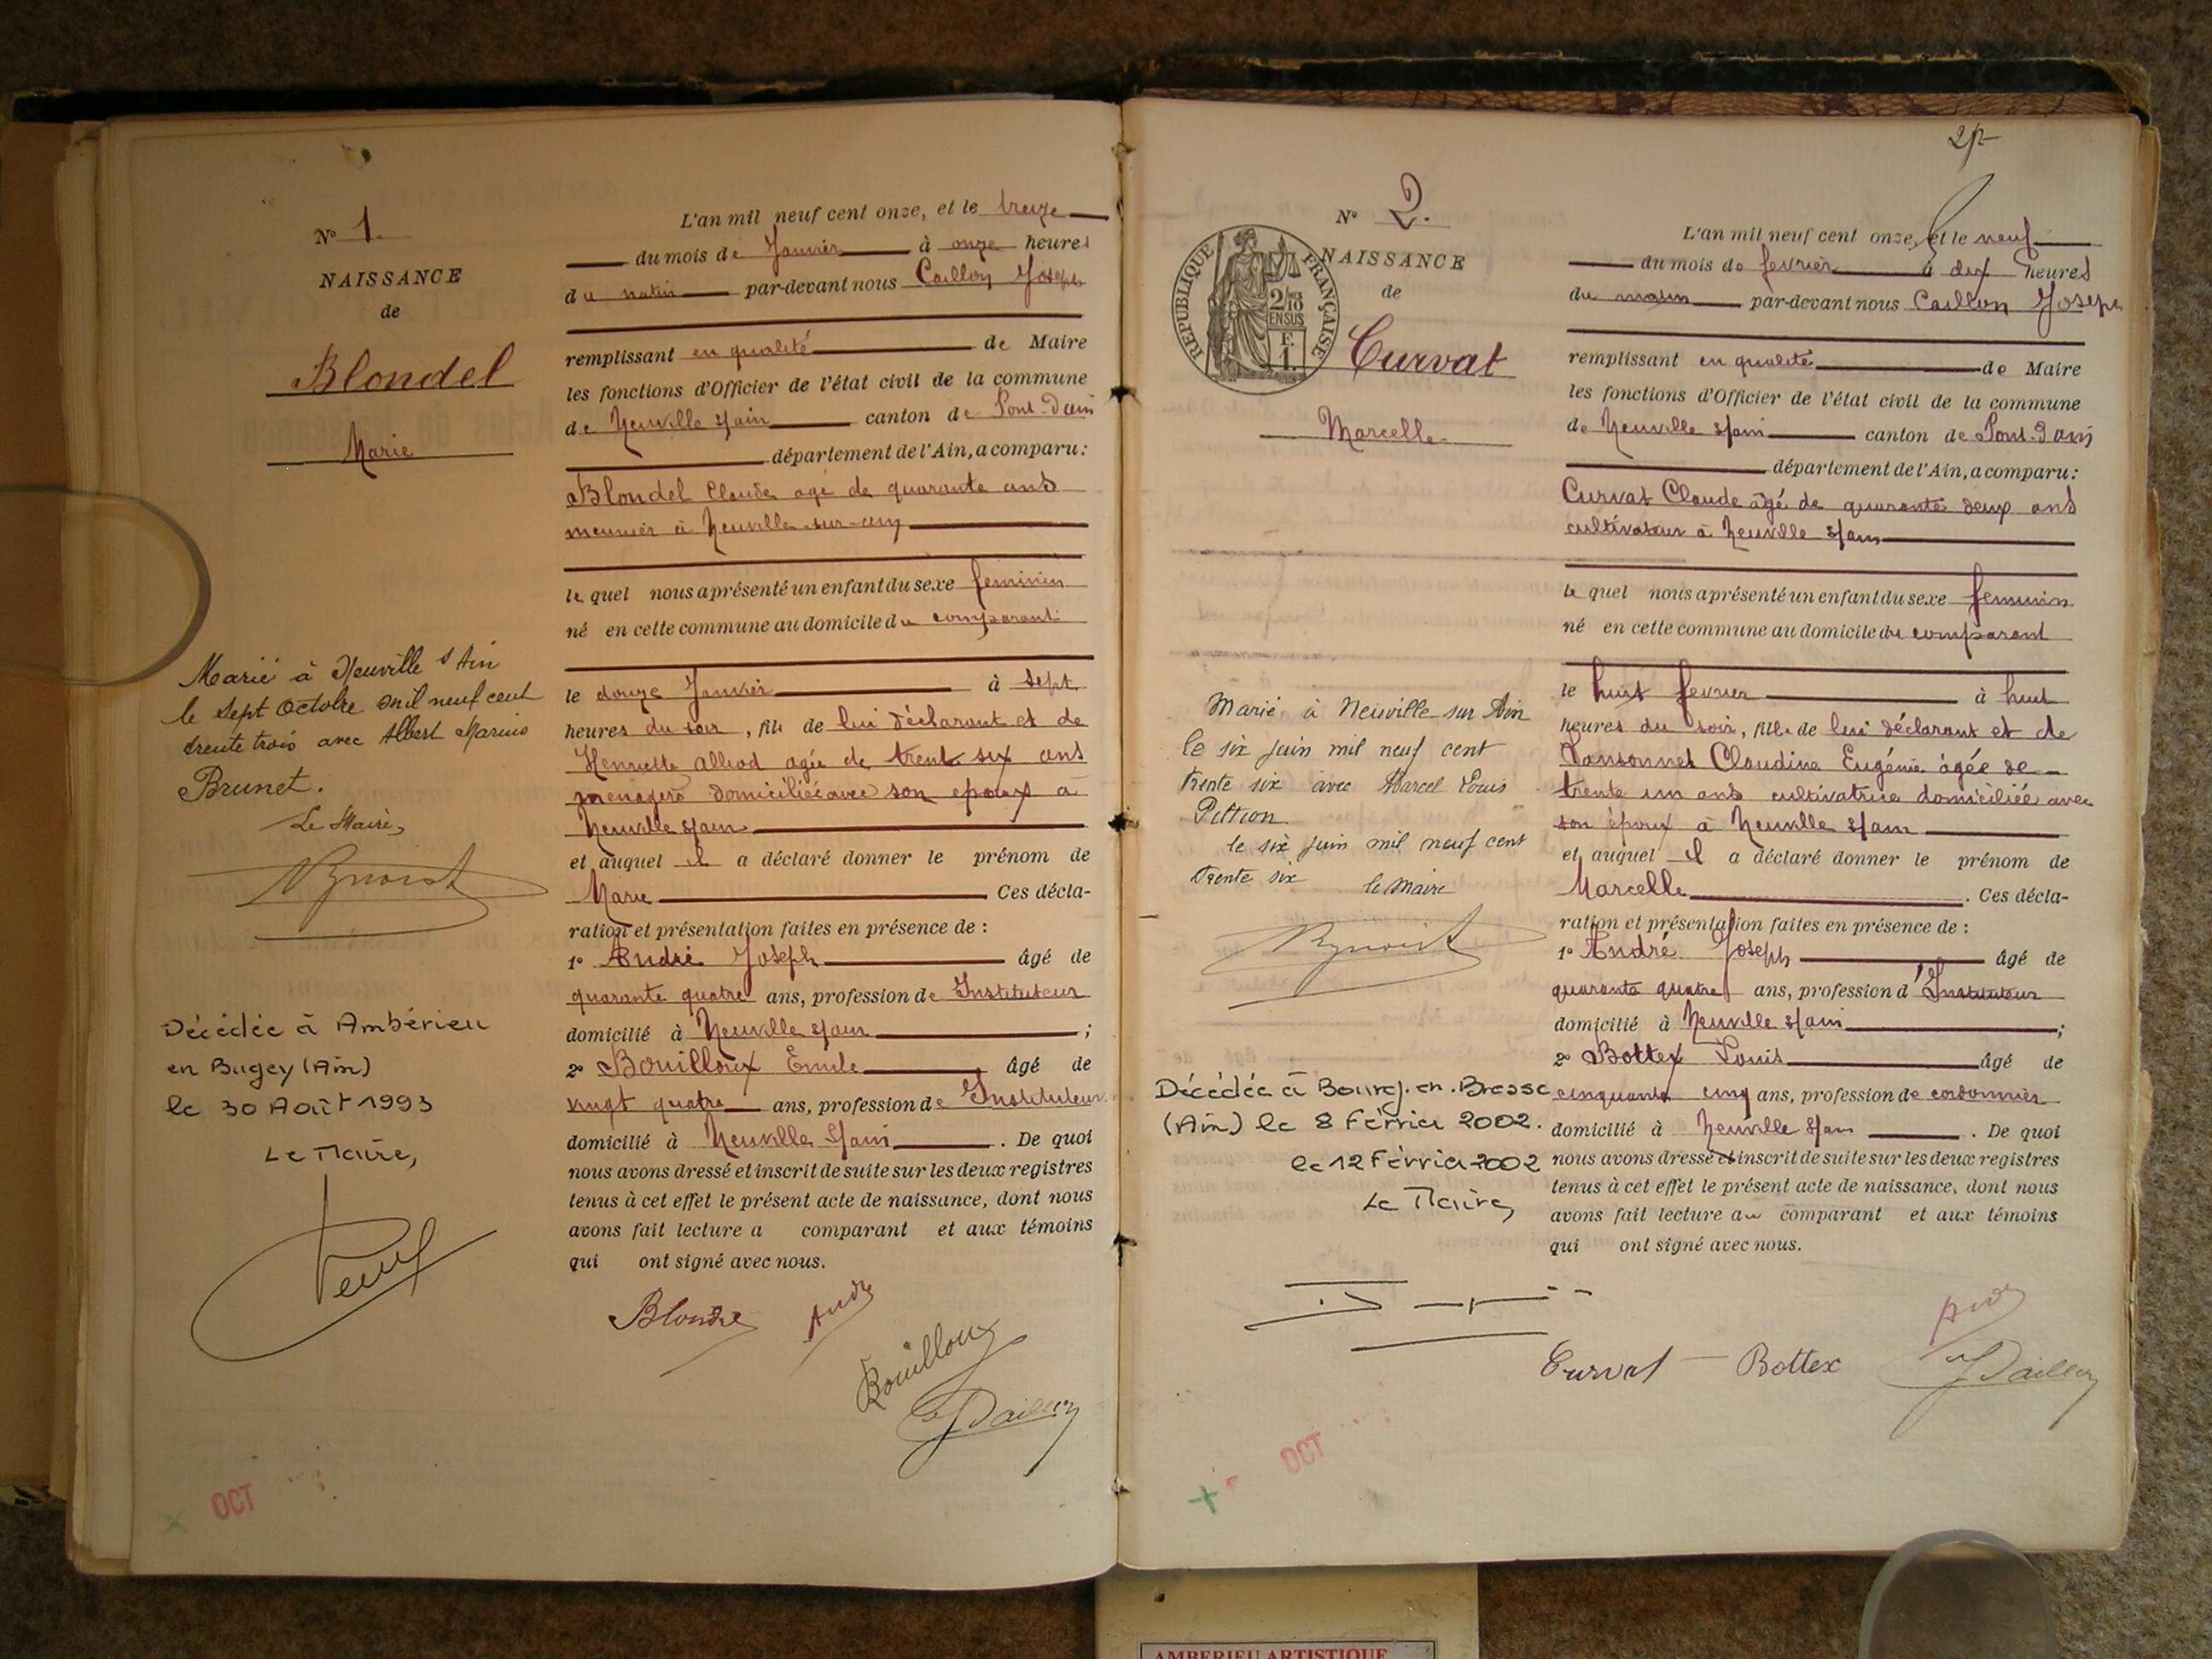 Nº 1.
NAISSANCE
de
Blondel
Marie
Marié à Neuville s/ Ain
le sept Octobre mil neuf cent
trente trois avec Albert Marius
Brunet.
Le Maire,
Décédée à Ambérieu
en Bugey (Ain)
le 30 Août 1993
Le Maire,
L'an mil neuf cent onze, et le treize
du mois de Janvier à onze heures
du matin par-devant nous Caillon Joseph
remplissant en qualité de Maire
les fonctions d'Officier de l'état civil de la commune
de Neuville s/ain canton de Pont-d'ain
département de l'Ain, a comparu :
Blondel Claude agé de quarante ans
meunier à Neuville-sur-ain
le quel nous a présenté un enfant du sexe feminin
né en cette commune au domicile du comparant
le douze Janvier à sept
heures du soir, fille de lui déclarant et de
Henriette alliod agée de trente six ans
menagère domiciliée avec son epoux à
Neuville s/ain
et auquel il a déclaré donner le prénom de
Marie Ces décla-
ration et présentation faites en présence de :
1º André Joseph âgé de
quarante quatre ans, profession de Instituteur
domicilié à Neuville s/ain ;
2º Bouilloux Emile âgé de
vingt quatre ans, profession de Instituteur
domicilié à Neuville s/ain . De quoi
nous avons dressé et inscrit de suite sur les deux registres
tenus à cet effet le présent acte de naissance, dont nous
avons fait lecture a comparant et aux témoins
qui ont signé avec nous.
Blondel André
Bouilloux
OCT
Nº 2.
NAISSANCE
de
RÉPUBLIQUE FRANÇAISE
2/10
EN SUS
F.
1.
Curvat
Marcelle
Marié à Neuville sur Ain
le six juin mil neuf cent
trente six avec Marcel Louis
le six juin mil neuf cent
trente six le Maire
Décédée à Bourg-en-Bresse
(Ain) le 8 Février 2002.
le 12 Février 2002
Le Maire,
L'an mil neuf cent onze, et le neuf
du mois de fevrier à dix heures
du matin par-devant nous Caillon Joseph
remplissant en qualité de Maire
les fonctions d'Officier de l'état civil de la commune
de Neuville s/ain canton de Pont-d'ain
département de l'Ain, a comparu :
Curvat Claude âgé de quarante deux ans
cultivateur à Neuville s/ain
le quel nous a présenté un enfant du sexe feminin
né en cette commune au domicile du comparant
le huit fevrier à huit
heures du soir, fille de lui déclarant et de
Claudine Eugénie âgée de
trente un ans cultivatrice domiciliée avec
son époux à Neuville s/ain
et auquel il a déclaré donner le prénom de
Marcelle . Ces décla-
ration et présentation faites en présence de :
1º André Joseph âgé de
quarante quatre ans, profession d'Instituteur
domicilié à Neuville s/ain ;
2º Bottex Louis âgé de
cinquante cinq ans, profession de cordonnier
domicilié à Neuville s/ain . De quoi
nous avons dressé et inscrit de suite sur les deux registres
tenus à cet effet le présent acte de naissance, dont nous
avons fait lecture au comparant et aux témoins
qui ont signé avec nous.
Curvat Bottex
OCT
AMBERIEU ARTISTIQUE